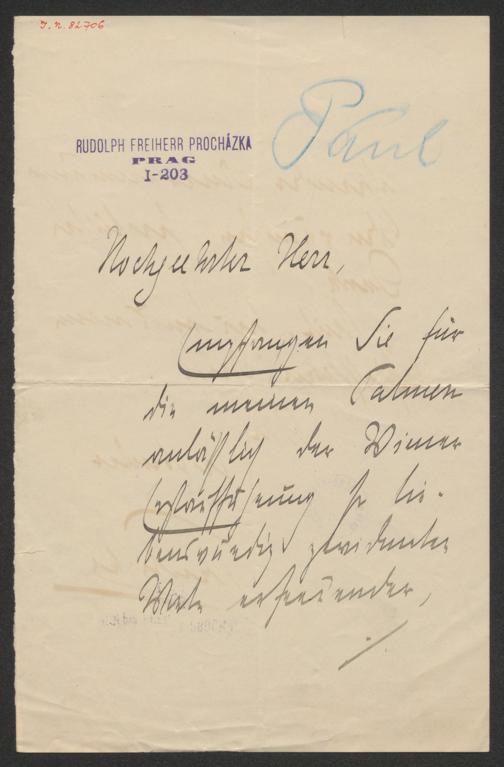 I.N. 82706
Paul
RUDOLPH FREIHERR PROCHÁZKA
PRAG
I-203
Hochgeehrter Herr,
Empfangen Sie für
die meinen Palmen
anläßlich der Wiener
Erstaufführung so lie-
benswürdig gewidmeten
Worte erfreuender,
./.